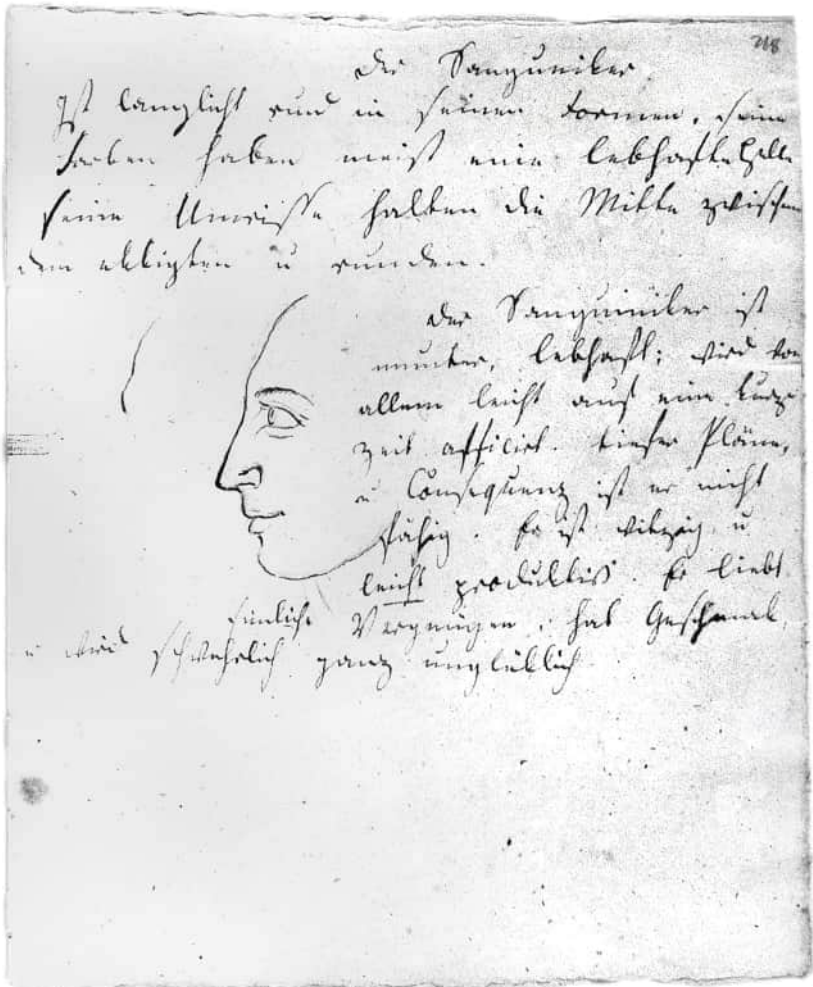 218
Der Sanguniker.
Ist länglicht rund in seinen Formen, seine
Farben haben meist eine lebhafte Helle
seine Umrisse halten die Mitte zwischen
dem ekkigten u runden.
Der Sanguiniker ist
munter, lebhaft; wird von
allem leicht auf eine kurze
Zeit afficirt. tiefer Pläne,
u Consequenz ist er nicht
fähig. Er ist witzig u
leicht produktiv. Er liebt
sinnliche Vergnügen, hat Geschmak,
u wird schwehrlich ganz unglüklich